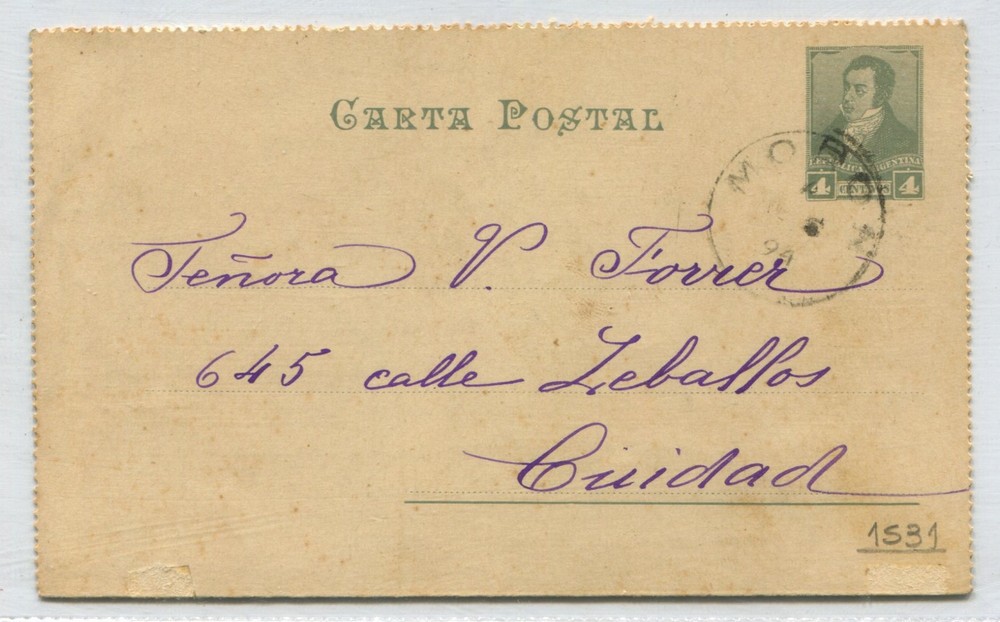 CARTA POSTAL
REPUBLICA ARGENTINA
4 CENTAVOS 4
MORON
94
Señora V. Forrer
645 calle Zeballos
Cuidad
1531